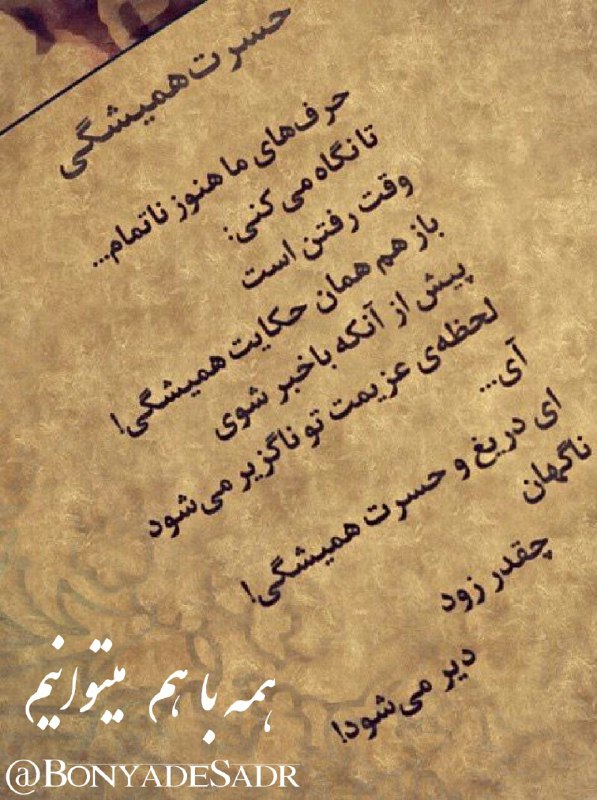 حسرت همیشگی
حرف‌های ما هنوز ناتمام...
تا نگاه می کنی:
وقت رفتن است
باز هم همان حکایت همیشگی!
پیش از آنکه باخبر شوی
لحظه‌ی عزیمت تو ناگزیر می‌شود
آی...
ای دریغ و حسرت همیشگی!
ناگهان
چقدر زود
دیر می‌شود!
همه با هم میتوانیم
@BONYADESADR